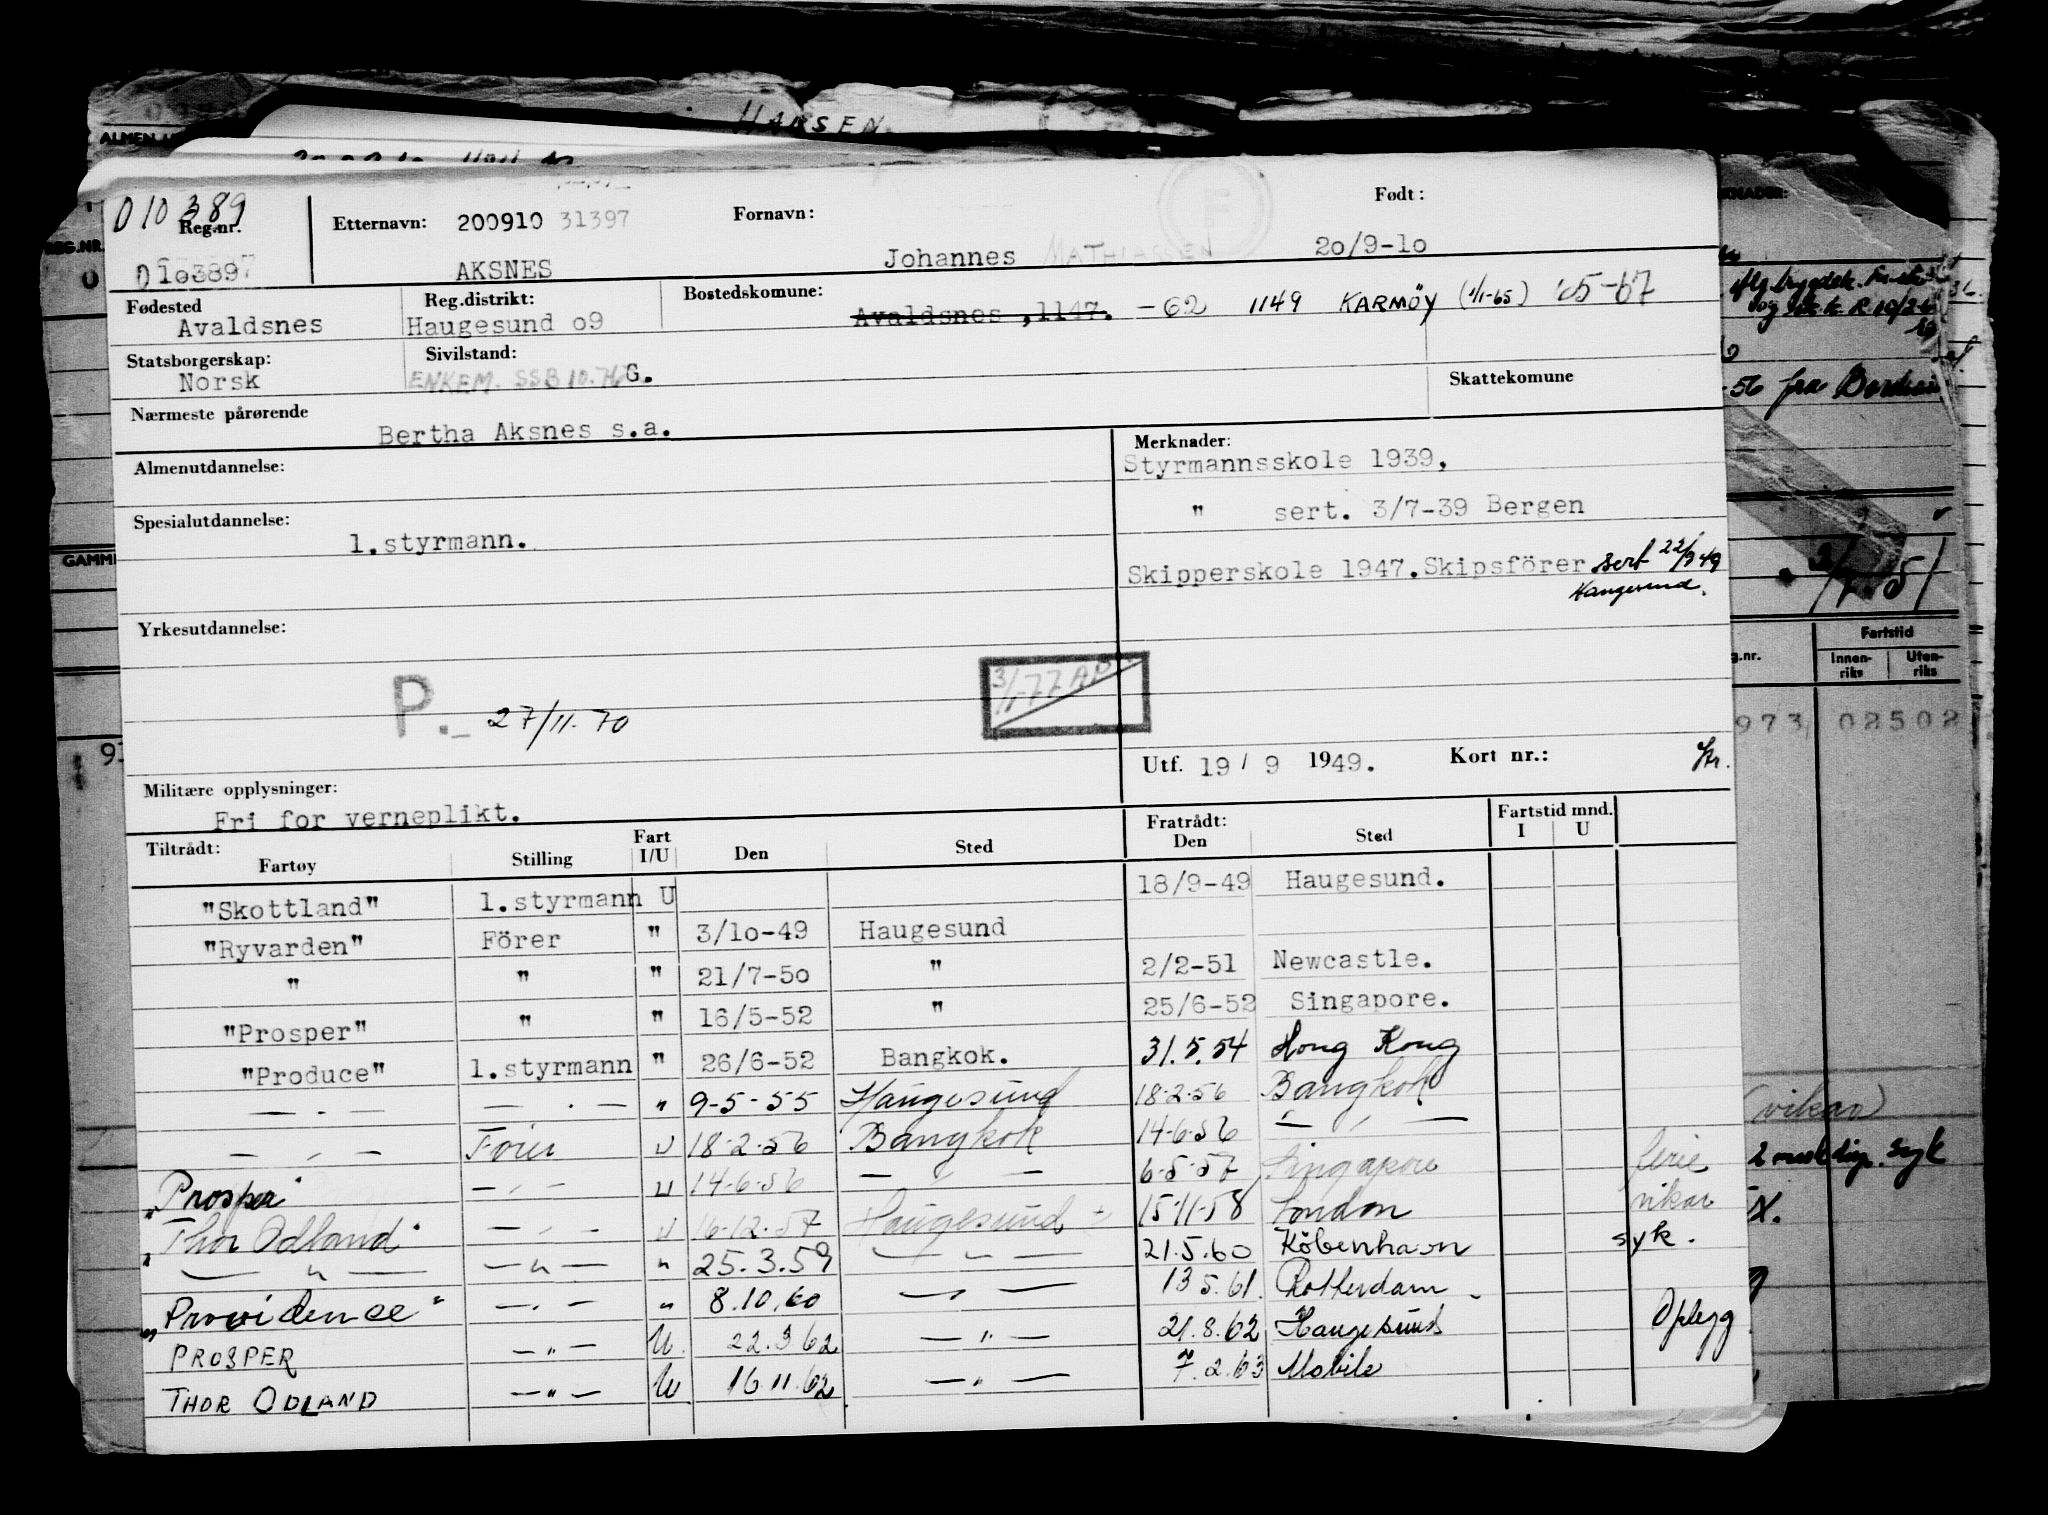 HANSEN
ALMEN
D 10 389
Reg.nr.
D103897
Etternavn: 200910 31397
AKSNES
Fornavn:
Johannes MATHIASSEN
F
Født:
20/9-10
Fødested
Avaldsnes
Reg.distrikt:
Haugesund o9
Bostedskomune:
Avaldsnes ,1147. -62 1149 KARMØY (1/1-65) 65-67
Statsborgerskap:
Norsk
Sivilstand:
ENKEM. SSB 10.76 G.
Skattekomune
Nærmeste pårørende
Bertha Aksnes s.a.
Almenutdannelse:
Merknader:
Styrmannsskole 1939,
" sert. 3/7-39 Bergen
Skipperskole 1947.Skipsförer sert 22/3 49
Haugesund.
Spesialutdannelse:
1.styrmann.
Yrkesutdannelse:
P. 27/11.70
3/1-77 AP
Utf. 19 / 9 1949. Kort nr.:
Militære opplysninger:
Fri for verneplikt.
Tiltrådt: Fratrådt: Fartstid mnd.
Fartøy Stilling Fart I/U Den Sted Den Sted I U
"Skottland" 1.styrmann U 18/9-49 Haugesund.
"Ryvarden" Förer " 3/10-49 Haugesund
" " " 21/7-50 " 2/2-51 Newcastle.
"Prosper" " " 16/5-52 " 25/6-52 Singapore.
"Produce" 1.styrmann " 26/6-52 Bangkok. 31.5.54 Hong Kong
— . — — . — " 9-5-55 Haugesund 18.2.56 Bangkok
— , — Förer U 18.2.56 Bangkok 14.6.56 — , —
"Prosper" — , — U 14.6.56 — , — 6.5.57 Singapore ferie
"Thor Odland" — , — U 16.12.57 Haugesund 15.11.58 London vikar
— " — — " — " 25.3.59 — " — 21.5.60 Köbenhavn syk.
"Providence" — , — " 8.10.60 — , — 13.5.61. Rotterdam
PROSPER — " — U. 22.3.62 — " — 21.8.62 Haugesund Oplegg
THOR ODLAND — " — U 16.11.62 — " — 7.2.63 Mobile
REG.NR.
GAMM
56 fra
Fartstid
Innen-riks Uten-riks
973 02502
(vikar)
syk